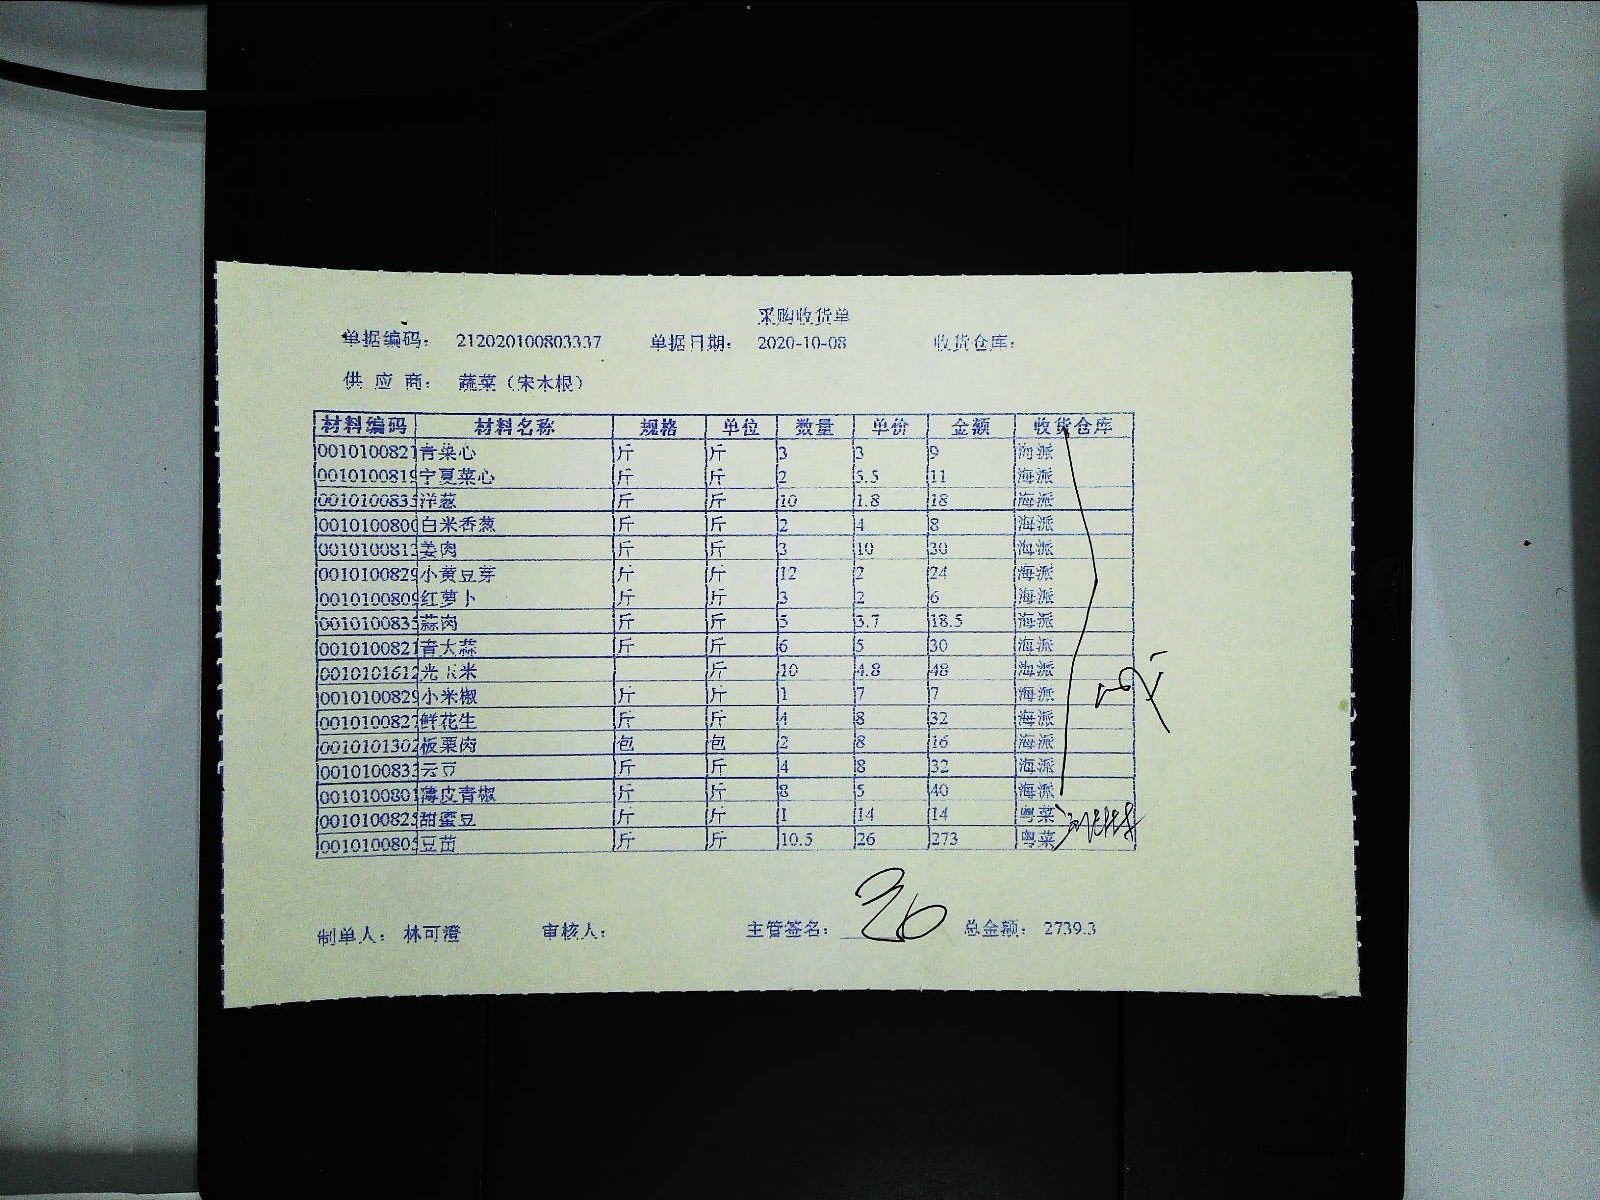 采购收货单
单据编码： 212020100803337 单据日期： 2020-10-08 收货仓库：
供 应 商： 蔬菜（宋木根）
材料编码 材料名称 规格 单位 数量 单价 金额 收货仓库
0010100821 青菜心 斤 斤 3 3 9 海派
001010081 宁夏菜心 斤 斤 2 5.5 11 海派
001010083 洋葱 斤 斤 10 1.8 18 海派
001010080 白米香葱 斤 斤 2 4 8 海派
001010081 姜肉 斤 斤 3 10 30 海派
001010082 小黄豆芽 斤 斤 12 2 24 海派
001010080 红萝卜 斤 斤 3 2 6 海派
001010083 蒜肉 斤 斤 5 3.7 18.5 海派
0010100821 青大蒜 斤 斤 6 5 30 海派
001010161 光玉米 斤 10 4.8 48 海派
001010082 小米椒 斤 斤 1 7 7 海派
001010082 鲜花生 斤 斤 4 8 32 海派
001010130 板栗肉 包 包 2 8 16 海派
001010083 云豆 斤 斤 4 8 32 海派
0010100801 薄皮青椒 斤 斤 8 5 40 海派
001010082 甜蜜豆 斤 斤 1 14 14 粤菜
001010080 豆苗 斤 斤 10.5 26 273 粤菜
制单人： 林可澄 审核人： 主管签名： 总金额： 2739.3